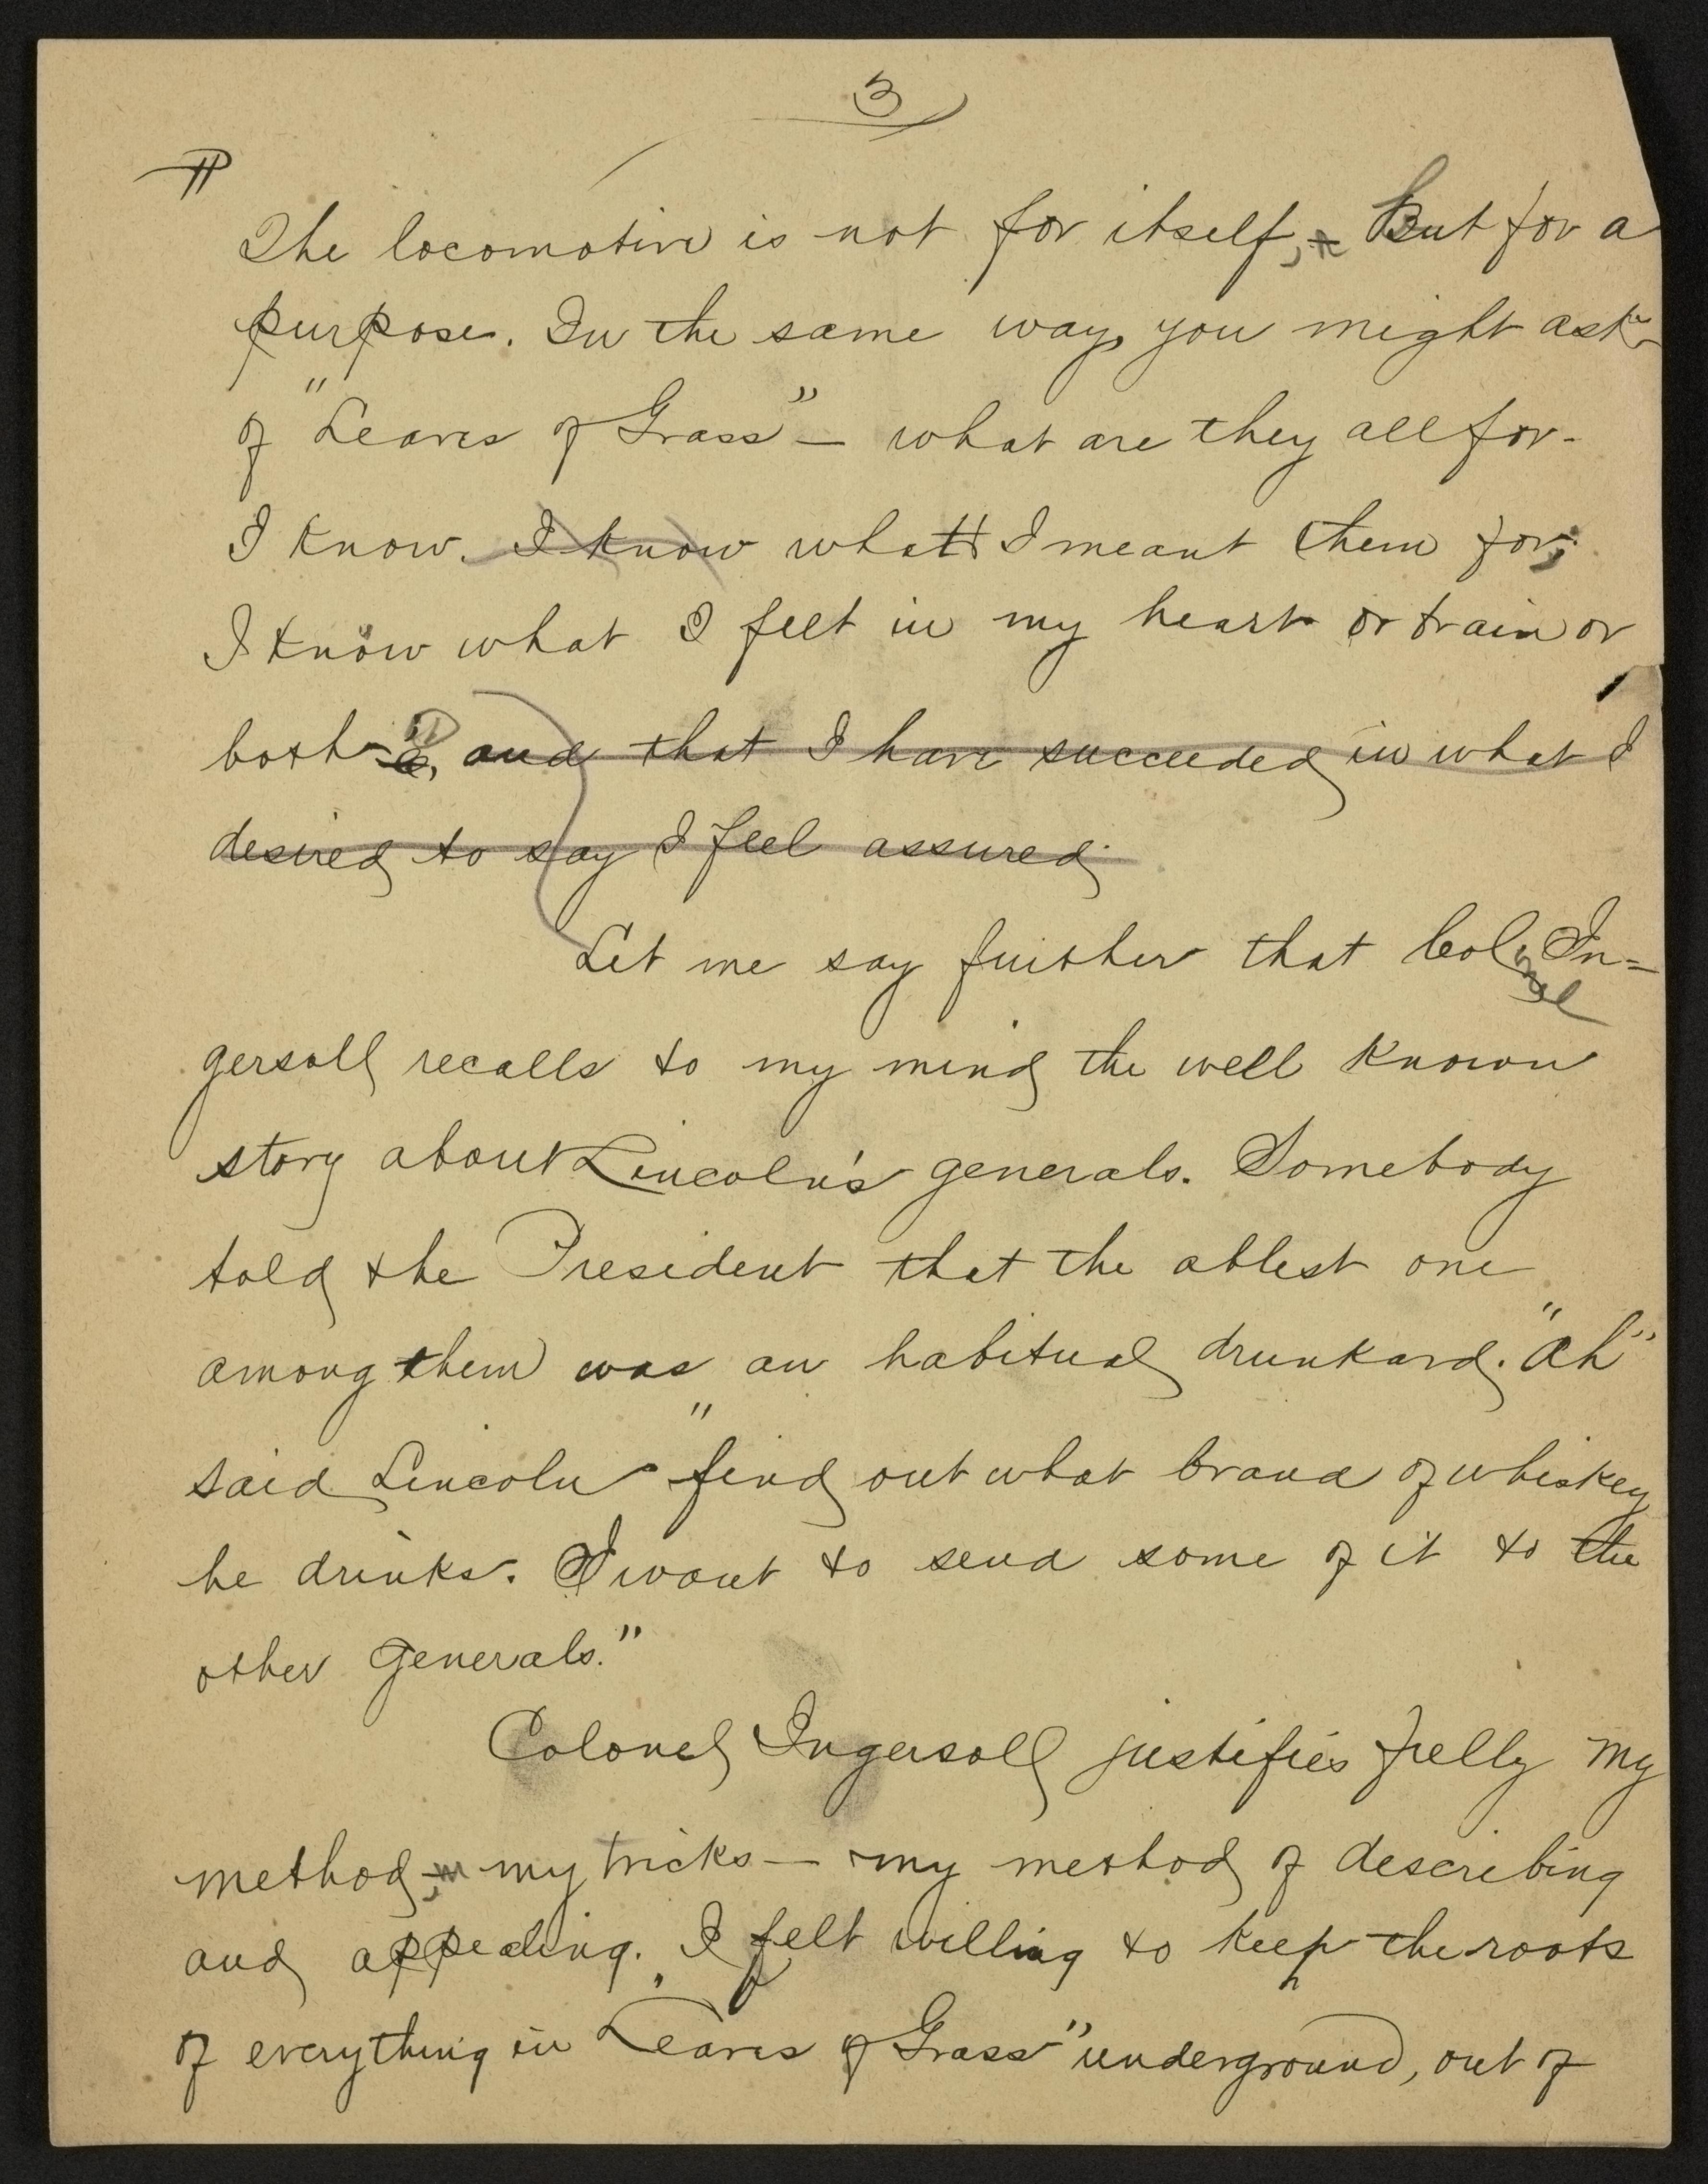 3
The locomotive is not for itself, – But for a
purpose. In the same way, you might ask
of "Leaves of Grass" – what are they all for –
I know. I know what I meant them for;
I know what I felt in my heart or brain or
both, and that I have succeeded in what I
desired to say I feel assured.
Let me say further that Colonel In=
gersoll recalls to my mind the well known
story about Lincoln's generals. Somebody
told the President that the ablest one
among them was an habitual drunkard. "Ah"
said Lincoln "find out what brand of whiskey
he drinks. I want to send some of it to the
other generals."
Colonel Ingersoll justifies fully my
method, my tricks – my method of describing
and appealing. I felt willing to keep the roots
of everything in "Leaves of Grass" underground, out of